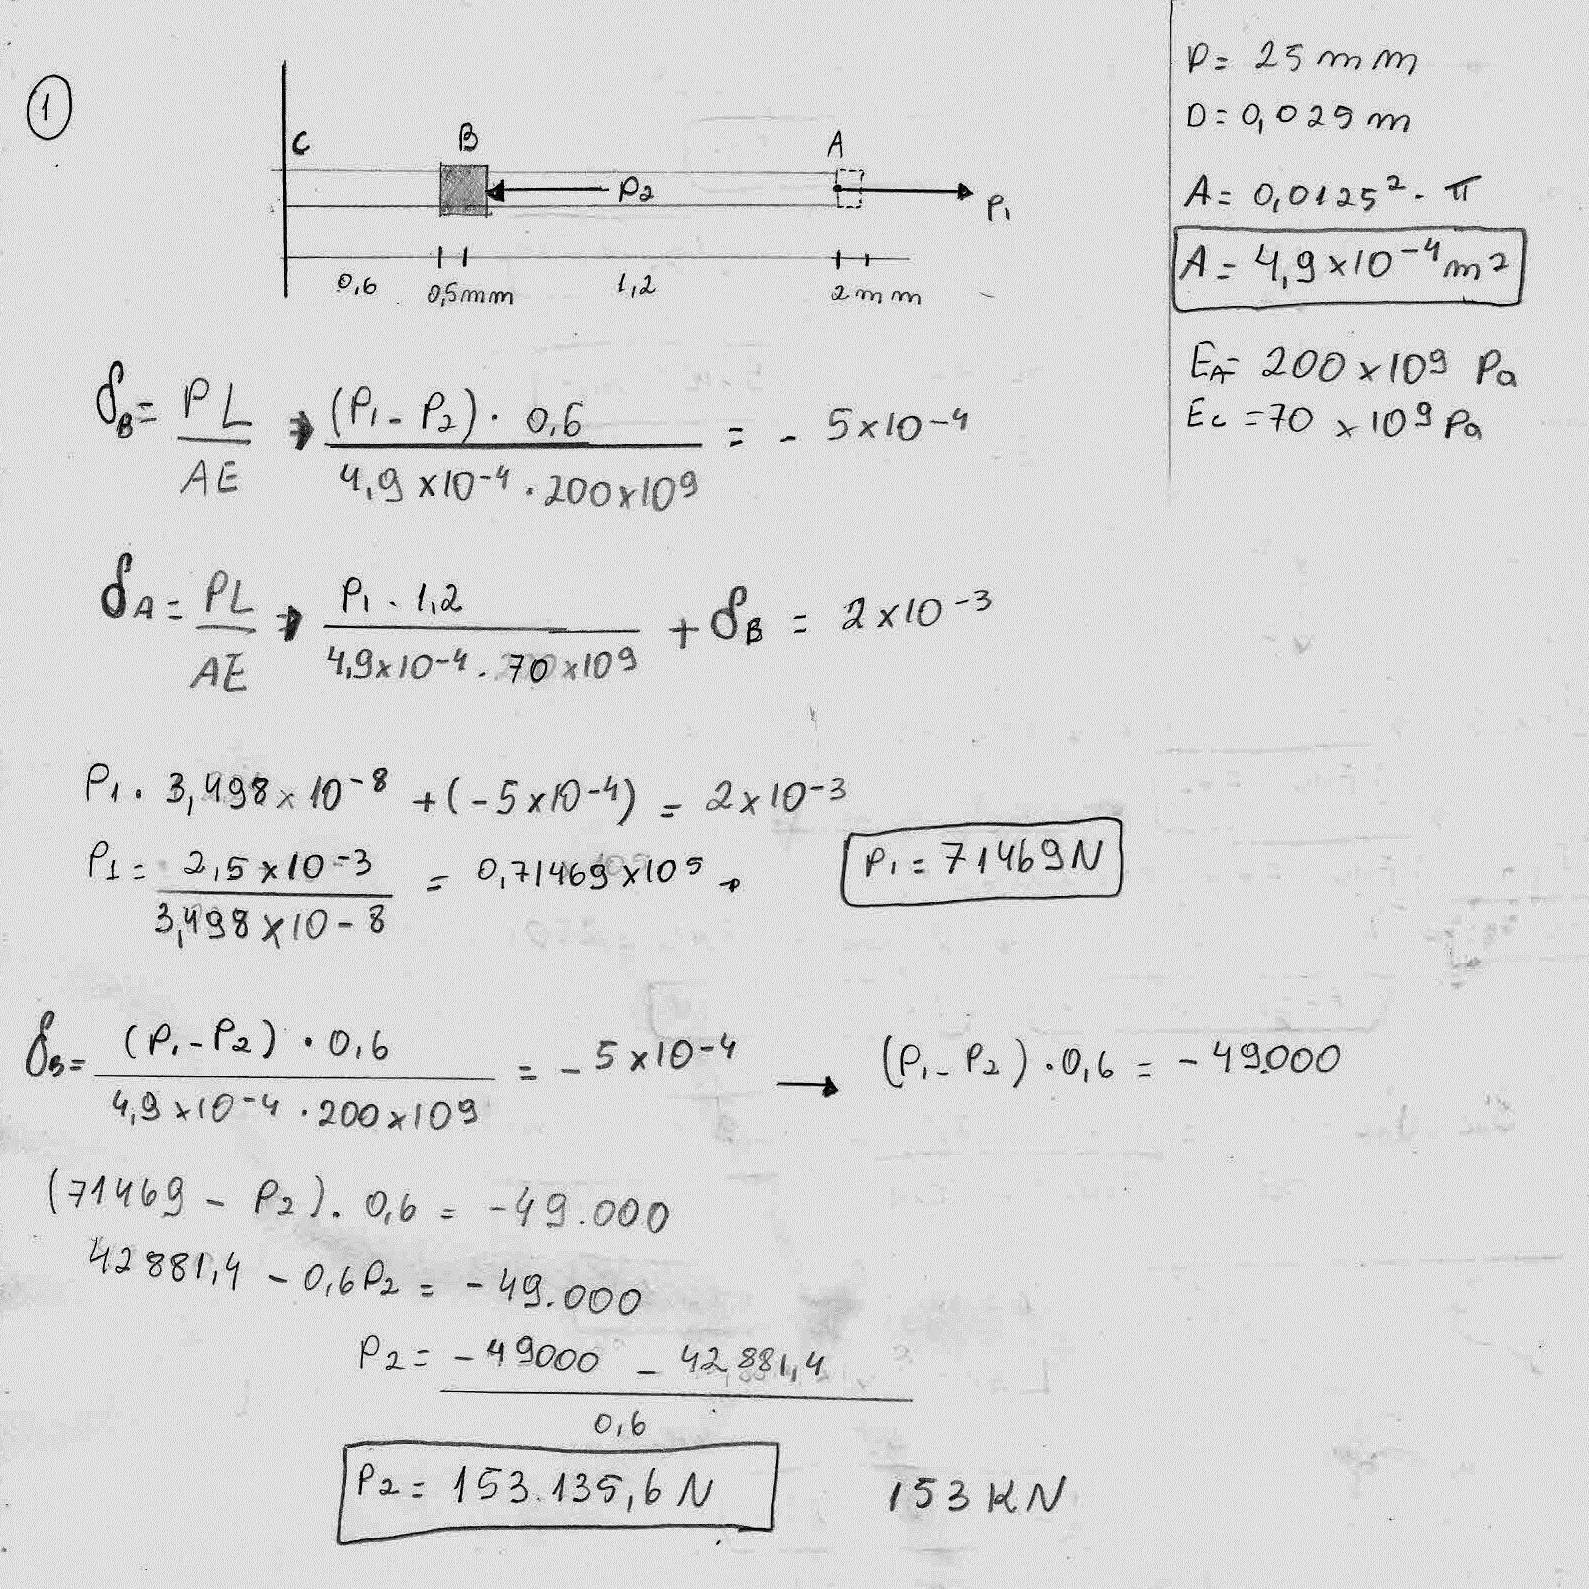 1
C B A
P2
P1
0,6 0,5mm 1,2 2mm
D= 25mm
D= 0,025m
A= 0,0125² . π
A= 4,9×10-4m²
EA= 200×10⁹ Pa
Ec =70 ×10⁹Pa
δB= PL/AE → (P1-P2) . 0,6 / 4,9×10-4 . 200×10⁹ = - 5×10-4
δA= PL/AE → P1 . 1,2 / 4,9×10-4 . 70×10⁹ + δB = 2×10-3
P1 . 3,498×10-8 +(-5×10-4) = 2×10-3
P1= 2,5×10-3 / 3,498×10-8 = 0,71469×10⁵ → P1= 71469N
δB= (P1-P2) . 0,6 / 4,9×10-4 . 200×10⁹ = - 5×10-4 → (P1-P2) . 0,6 = -49.000
(71469 - P2). 0,6 = -49.000
42881,4 - 0,6P2 = -49.000
P2= -49000 - 42881,4 / 0,6
P2= 153.135,6 N 153 KN